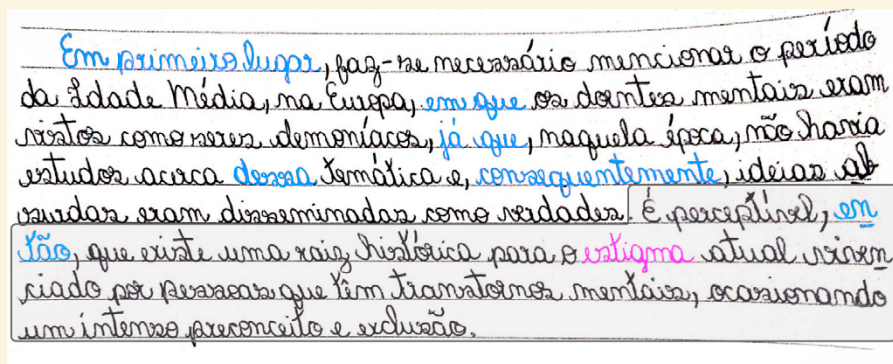 Em primeiro lugar, faz-se necessário mencionar o período
da Idade Média, na Europa, em que os doentes mentais eram
vistos como seres demoníacos, já que, naquela época, não havia
estudos acerca dessa temática e, consequentemente, ideias ab
surdas eram disseminadas como verdades. É perceptível, en
tão, que existe uma raiz histórica para o estigma atual viven
ciado por pessoas que têm transtornos mentais, ocasionando
um intenso preconceito e exclusão.